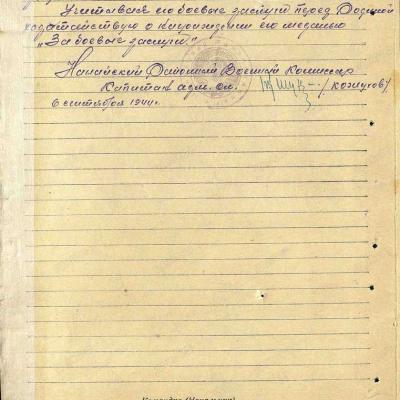 Учитывая его боевые заслуги перед Родиной
ходатайствую о награждении его медалью
„За боевые заслуги"
Нанайский Районный Военный Комиссар
Капитан адм. сл. /Кожухов/
6 сентября 1944г.